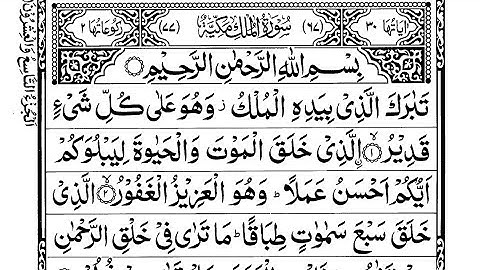 اٰیاتُهَا ٣٠ (٦٧) سُوْرَةُ الْمُلْكِ مَكِّیَّةٌ (٧٧) رُكُوْعَاتُهَا ٢
بِسْمِ اللّٰهِ الرَّحْمٰنِ الرَّحِیْمِ
تَبٰرَكَ الَّذِیْ بِیَدِهِ الْمُلْكُ ز وَهُوَ عَلٰی كُلِّ شَیْءٍ
قَدِیْرُ ۙ﴿١﴾ اِلَّذِیْ خَلَقَ الْمَوْتَ وَالْحَیٰوةَ لِیَبْلُوَكُمْ
اَیُّكُمْ اَحْسَنُ عَمَلًا ؕ وَهُوَ الْعَزِیْزُ الْغَفُوْرُ ۙ﴿٢﴾ الَّذِیْ
خَلَقَ سَبْعَ سَمٰوٰتٍ طِبَاقًا ؕ مَا تَرٰی فِیْ خَلْقِ الرَّحْمٰنِ
اَلْجُزْءُ التَّاسِعُ وَالْعِشْرُوْنَ